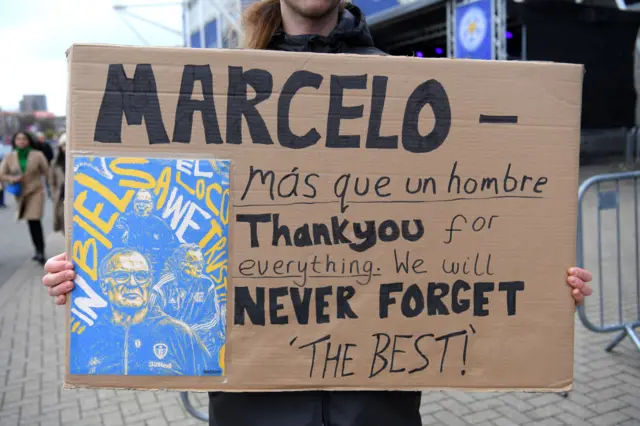 MARCELO -
Más que un hombre
Thankyou for
everything. We will
NEVER FORGET
'THE BEST!'
EL
LOCO
IN BIELSA WE TRUST